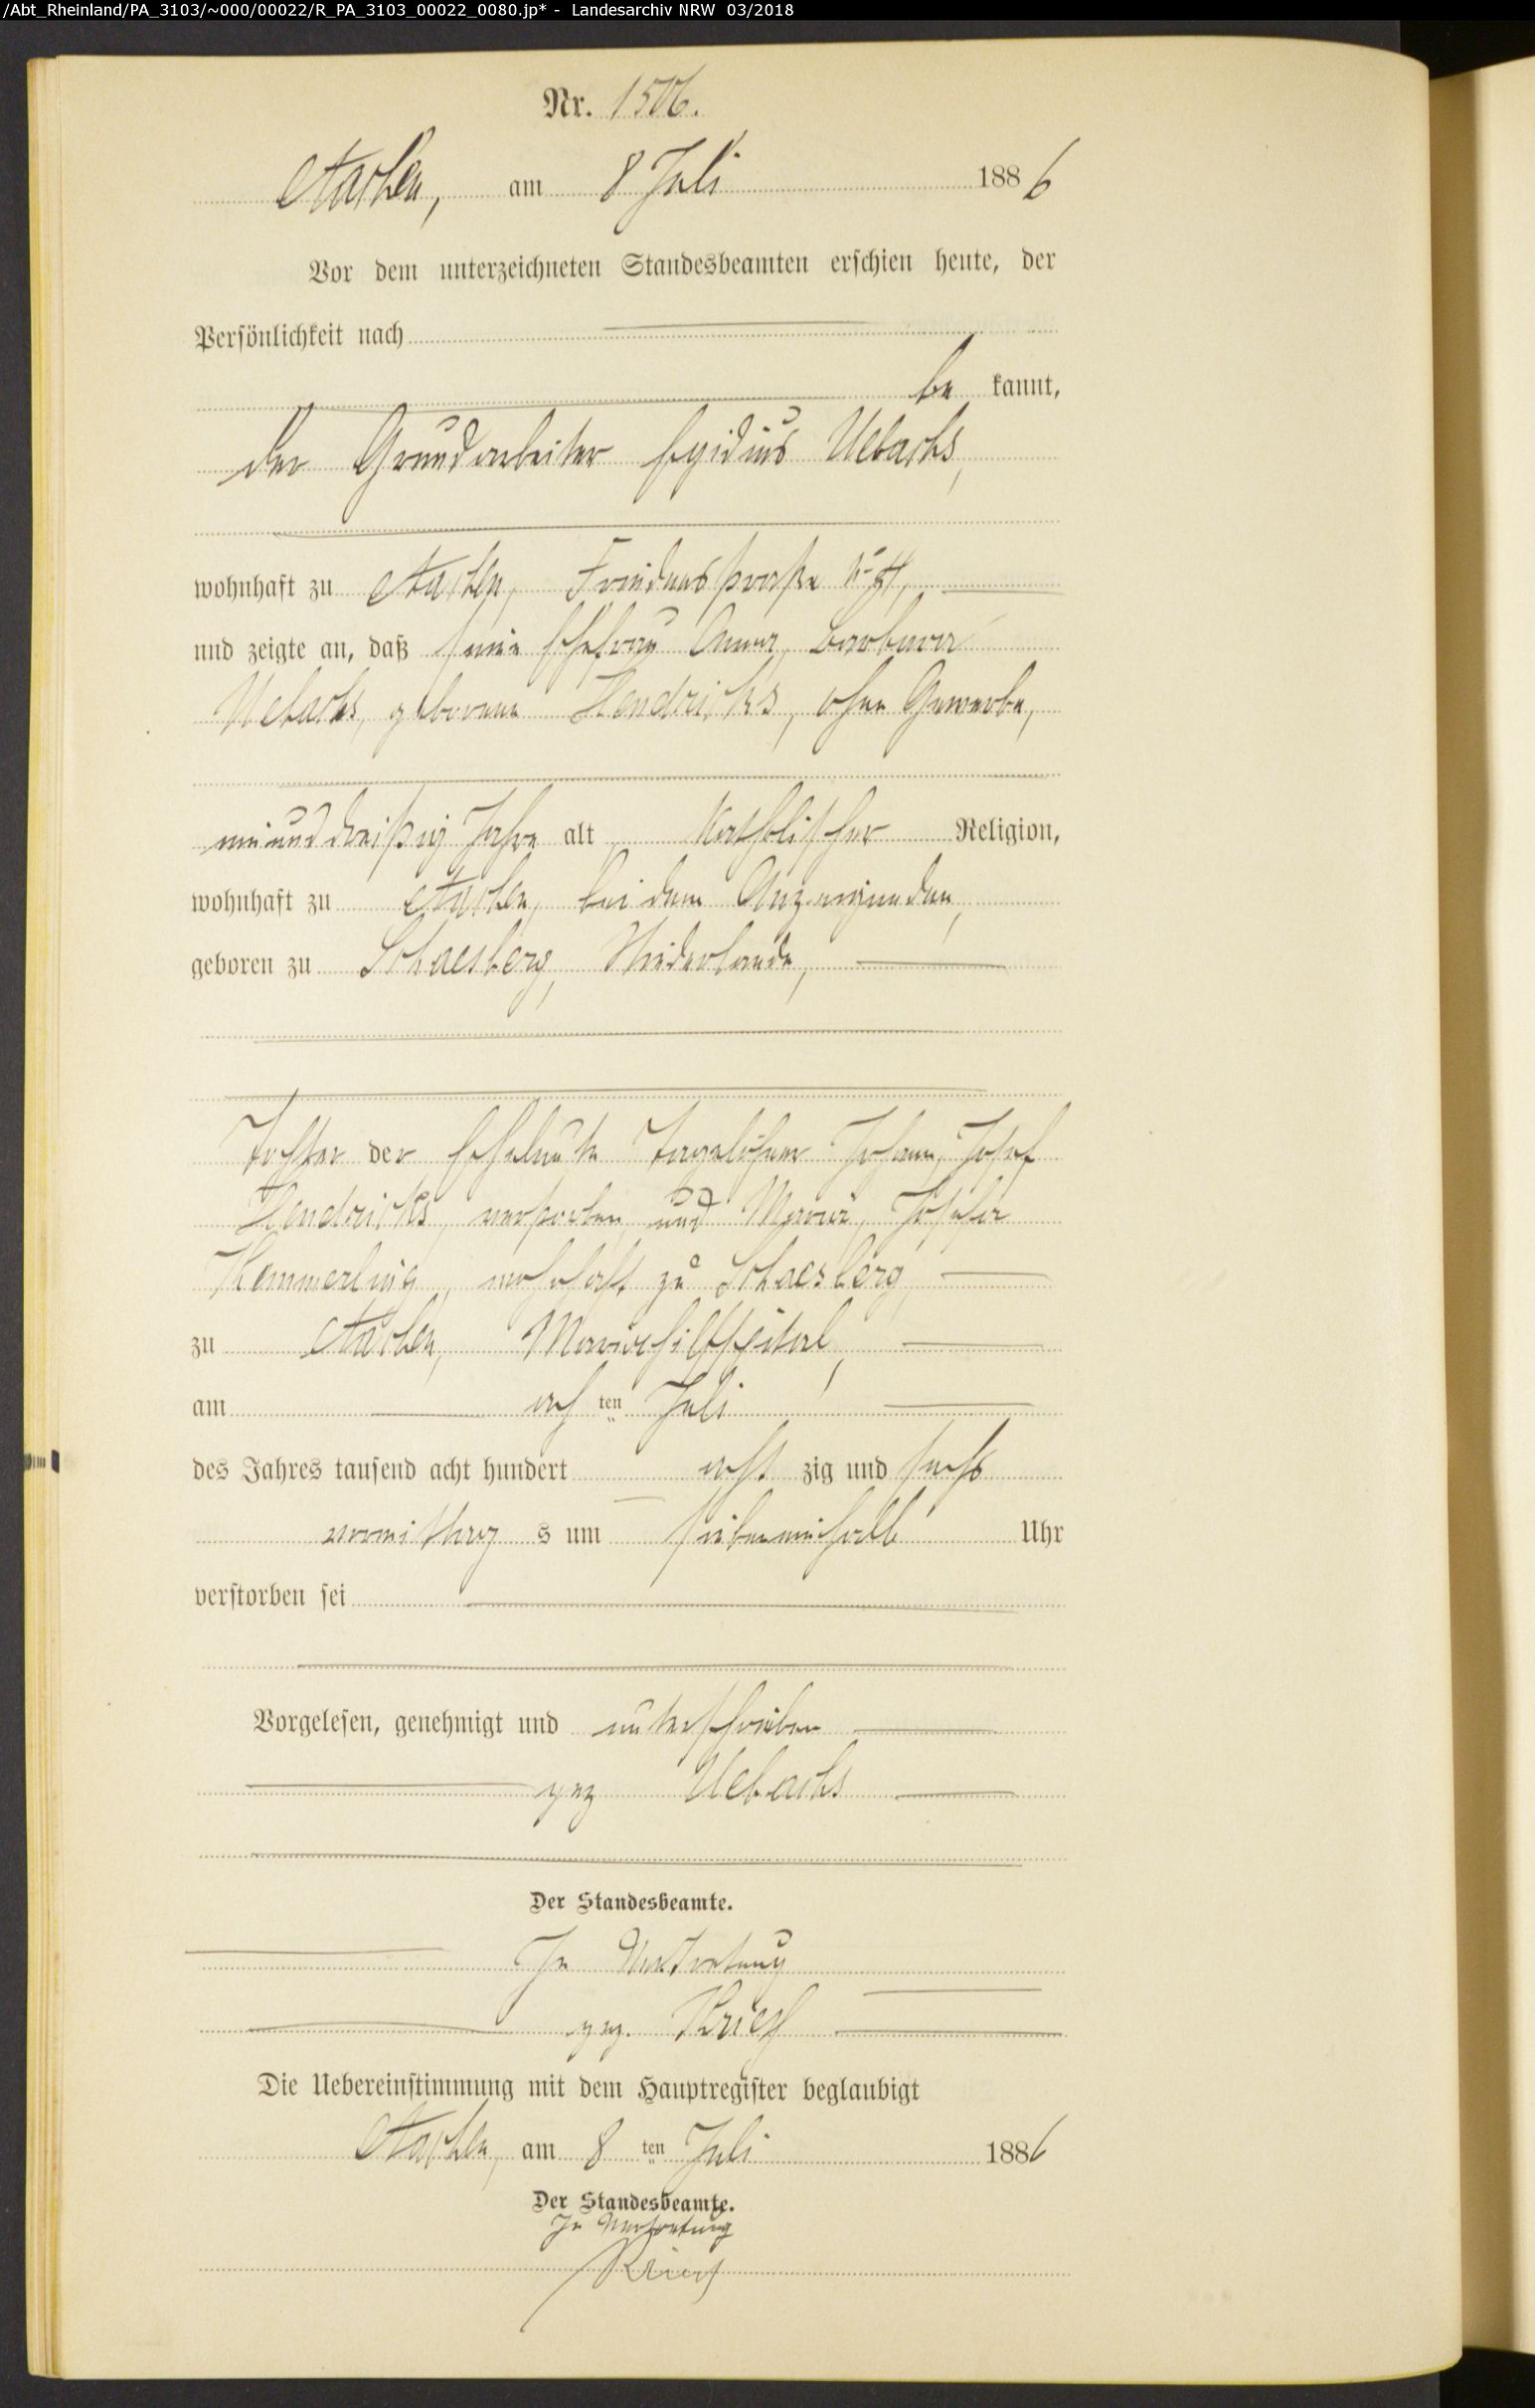 /Abt_Rheinland/PA_3103/~000/00022/R_PA_3103_00022_0080.jp* - Landesarchiv NRW 03/2018
Nr. 1506.
Aachen, am 8 Juli 1886
Vor dem unterzeichneten Standesbeamten erschien heute, der
Persönlichkeit nach
be kannt,
der Grundarbeiter Egidius Uebachs,
wohnhaft zu Aachen, Friedensstraße
und zeigte an, daß seine Ehefrau Anna, Barbara
Uebachs, geborene Hendricks, ohne Gewerbe,
neununddreißig Jahre alt, katholischer Religion,
wohnhaft zu Aachen, bei dem Anzeigenden,
geboren zu Schaesberg, Niederlande,
Tochter der Eheleute Tagelöhner Johann, Josef
Hendricks, verstorben, und Maria, Josefa
Kemmerling, wohnhaft zu Schaesberg,
zu Aachen, Mariahilfspital,
am ach ten Juli
des Jahres tausend acht hundert acht zig und sechs
vormittag s um siebeneinhalb Uhr
verstorben sei
Vorgelesen, genehmigt und unterschrieben
gez Uebachs
Der Standesbeamte.
In Vertretung
gez.
Die Uebereinstimmung mit dem Hauptregister beglaubigt
Aachen, am 8 ten Juli 1886
Der Standesbeamte.
In Vertretung